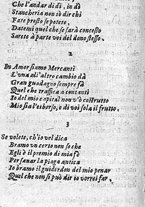 Che l'andar di dì, in dì
Stancheria non sò dir chi
Fate presto se potete,
Datemi quel che farà contesto
Sarete à parte voi del dono stesso.
2
In Amor siamo Mercanti
E l'una all'altro cambio dà
Gran guadagno sempre fà
Quel che traffica a contanti
Del mio capital non v'è costrutto
Mio sia l'esborso, e di voi sia il frutto.
3
Se volete, ch'io vel dica
Bramo vn certo non sò che
Egli è il premio di mia fè
Per sanar la piaga antica
Bramo il guiderdon del mio penar
Quel che non si può dir vorrei far.